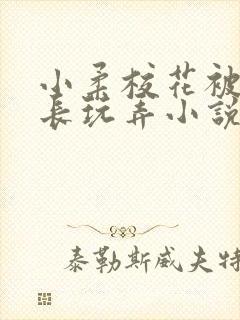 小柔校花被
长玩弄小説
泰勒斯威夫特